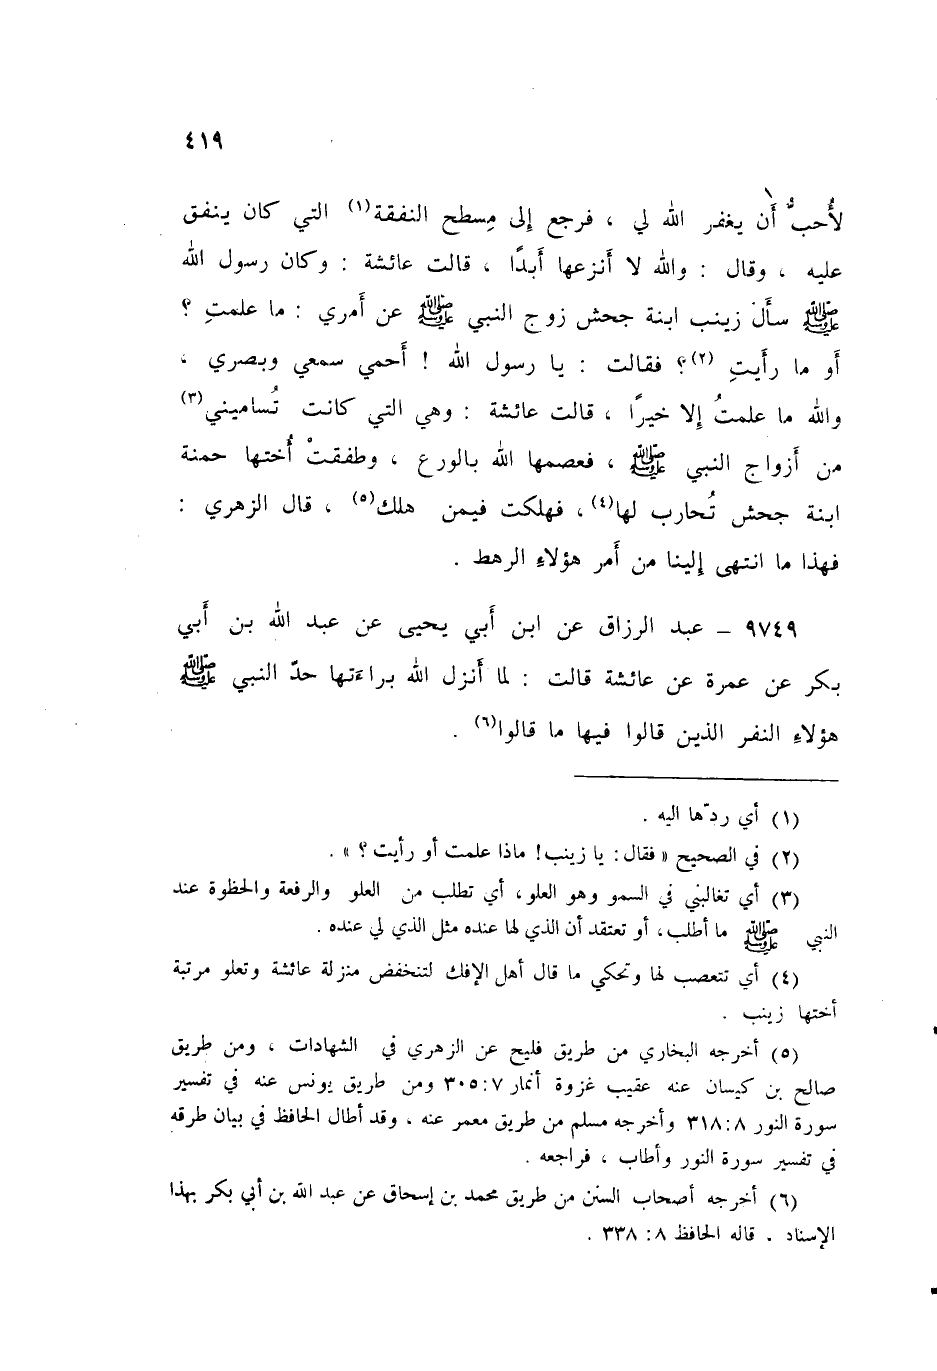 ٤١٩
لأُحبُّ أَن يغفر الله لي ، فرجع إلى مِسطح النفقة(١) التي كان ينفق
عليه ، وقال : والله لا أَنزعها أَبدًا ، قالت عائشة : وكان رسول الله
ﷺ سأَل زينب ابنة جحش زوج النبي ﷺ عن أَمري : ما علمتِ ؟
أَو ما رأَيتِ (٢)؟ فقالت : يا رسول الله ! أَحمي سمعي وبصري ،
والله ما علمتُ إلا خيرًا ، قالت عائشة : وهي التي كانت تُساميني(٣)
من أَزواج النبي ﷺ ، فعصمها الله بالورع ، وطفقتْ أُختها حمنة
ابنة جحش تُحارب لها(٤)، فهلكت فيمن هلك(٥) ، قال الزهري :
فهذا ما انتهى إلينا من أَمر هؤلاءِ الرهط .
٩٧٤٩ – عبد الرزاق عن ابن أَبي يحيى عن عبد الله بن أَبي
بكر عن عمرة عن عائشة قالت : لما أَنزل الله براءَتها حدّ النبي ﷺ
هؤلاءِ النفر الذين قالوا فيها ما قالوا(٦) .
(١) أي ردّها اليه .
(٢) في الصحيح « فقال: يا زينب! ماذا علمت أو رأيت ؟ » .
(٣) أي تغالبني في السمو وهو العلو، أي تطلب من العلو والرفعة والحظوة عند
النبي ﷺ ما أطلب، أو تعتقد أن الذي لها عنده مثل الذي لي عنده .
(٤) أي تتعصب لها وتحكي ما قال أهل الإفك لتنخفض منزلة عائشة وتعلو مرتبة
أختها زينب .
(٥) أخرجه البخاري من طريق فليح عن الزهري في الشهادات ، ومن طريق
صالح بن كيسان عنه عقيب غزوة أنمار ٧: ٣٠٥ ومن طريق يونس عنه في تفسير
سورة النور ٨: ٣١٨ وأخرجه مسلم من طريق معمر عنه ، وقد أطال الحافظ في بيان طرقه
في تفسير سورة النور وأطاب ، فراجعه .
(٦) أخرجه أصحاب السنن من طريق محمد بن إسحاق عن عبد الله بن أبي بكر بهذا
الإسناد . قاله الحافظ ٨: ٣٣٨ .